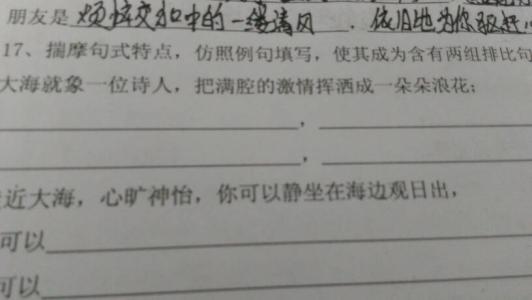 朋友是烦恼交加中的一缕清风
17、揣摩句式特点，仿照例句填写，使其成为含有两组排比句
大海就象一位诗人，把满腔的激情挥洒成一朵朵浪花；
，
，
近大海，心旷神怡，你可以静坐在海边观日出，
可以
可以